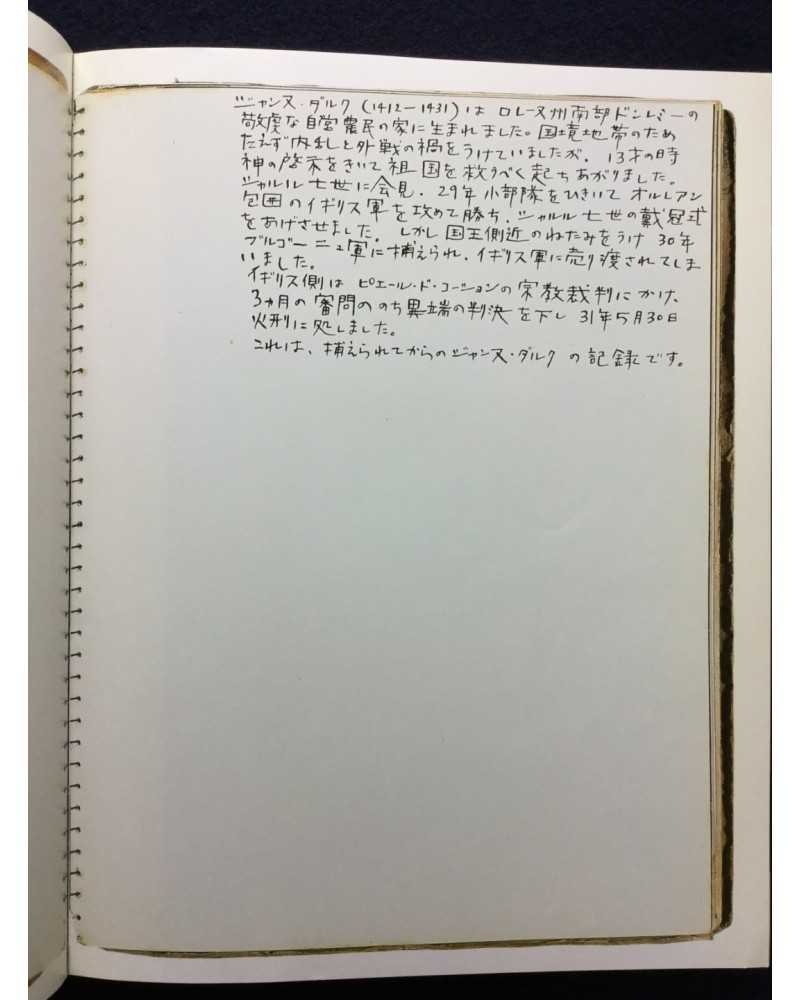 ジャンヌ・ダルク(1412―1431)は ロレーヌ州南部ドンレミーの
敬虔な自営農民の家に生まれました。国境地帯のため
たえず内乱と外戦の禍をうけていましたが、13才の時
神の啓示をきいて祖国を救うべく起ちあがりました。
シャルル七世に会見、29年小部隊をひきいて オルレアン
包囲のイギリス軍を攻めて勝ち、シャルル七世の戴冠式
をあげさせました。しかし国王側近のねたみをうけ 30年
ブルゴーニュ軍に捕えられ、イギリス軍に売り渡されてしま
いました。
イギリス側は ピエール・ド・コーションの宗教裁判にかけ、
3ヵ月の審問ののち異端の判決を下し 31年5月30日
火刑に処しました。
これは、捕えられてからのジャンヌ・ダルクの記録です。